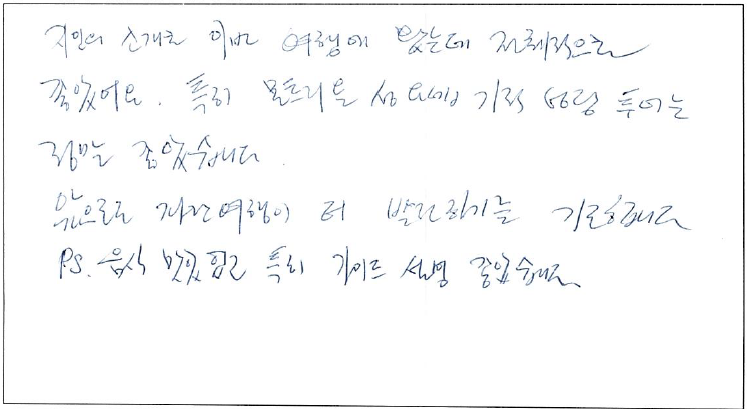 지인의 소개로 이번 여행에 왔는데 전체적으로
좋았어요. 특히 몬트리올 성요셉 기적 성당 투어는
정말 좋았습니다.
앞으로도 여행이 더 발전하기를 기도합니다
PS. 음식 맛있었고 특히 가이드 설명 좋았습니다.